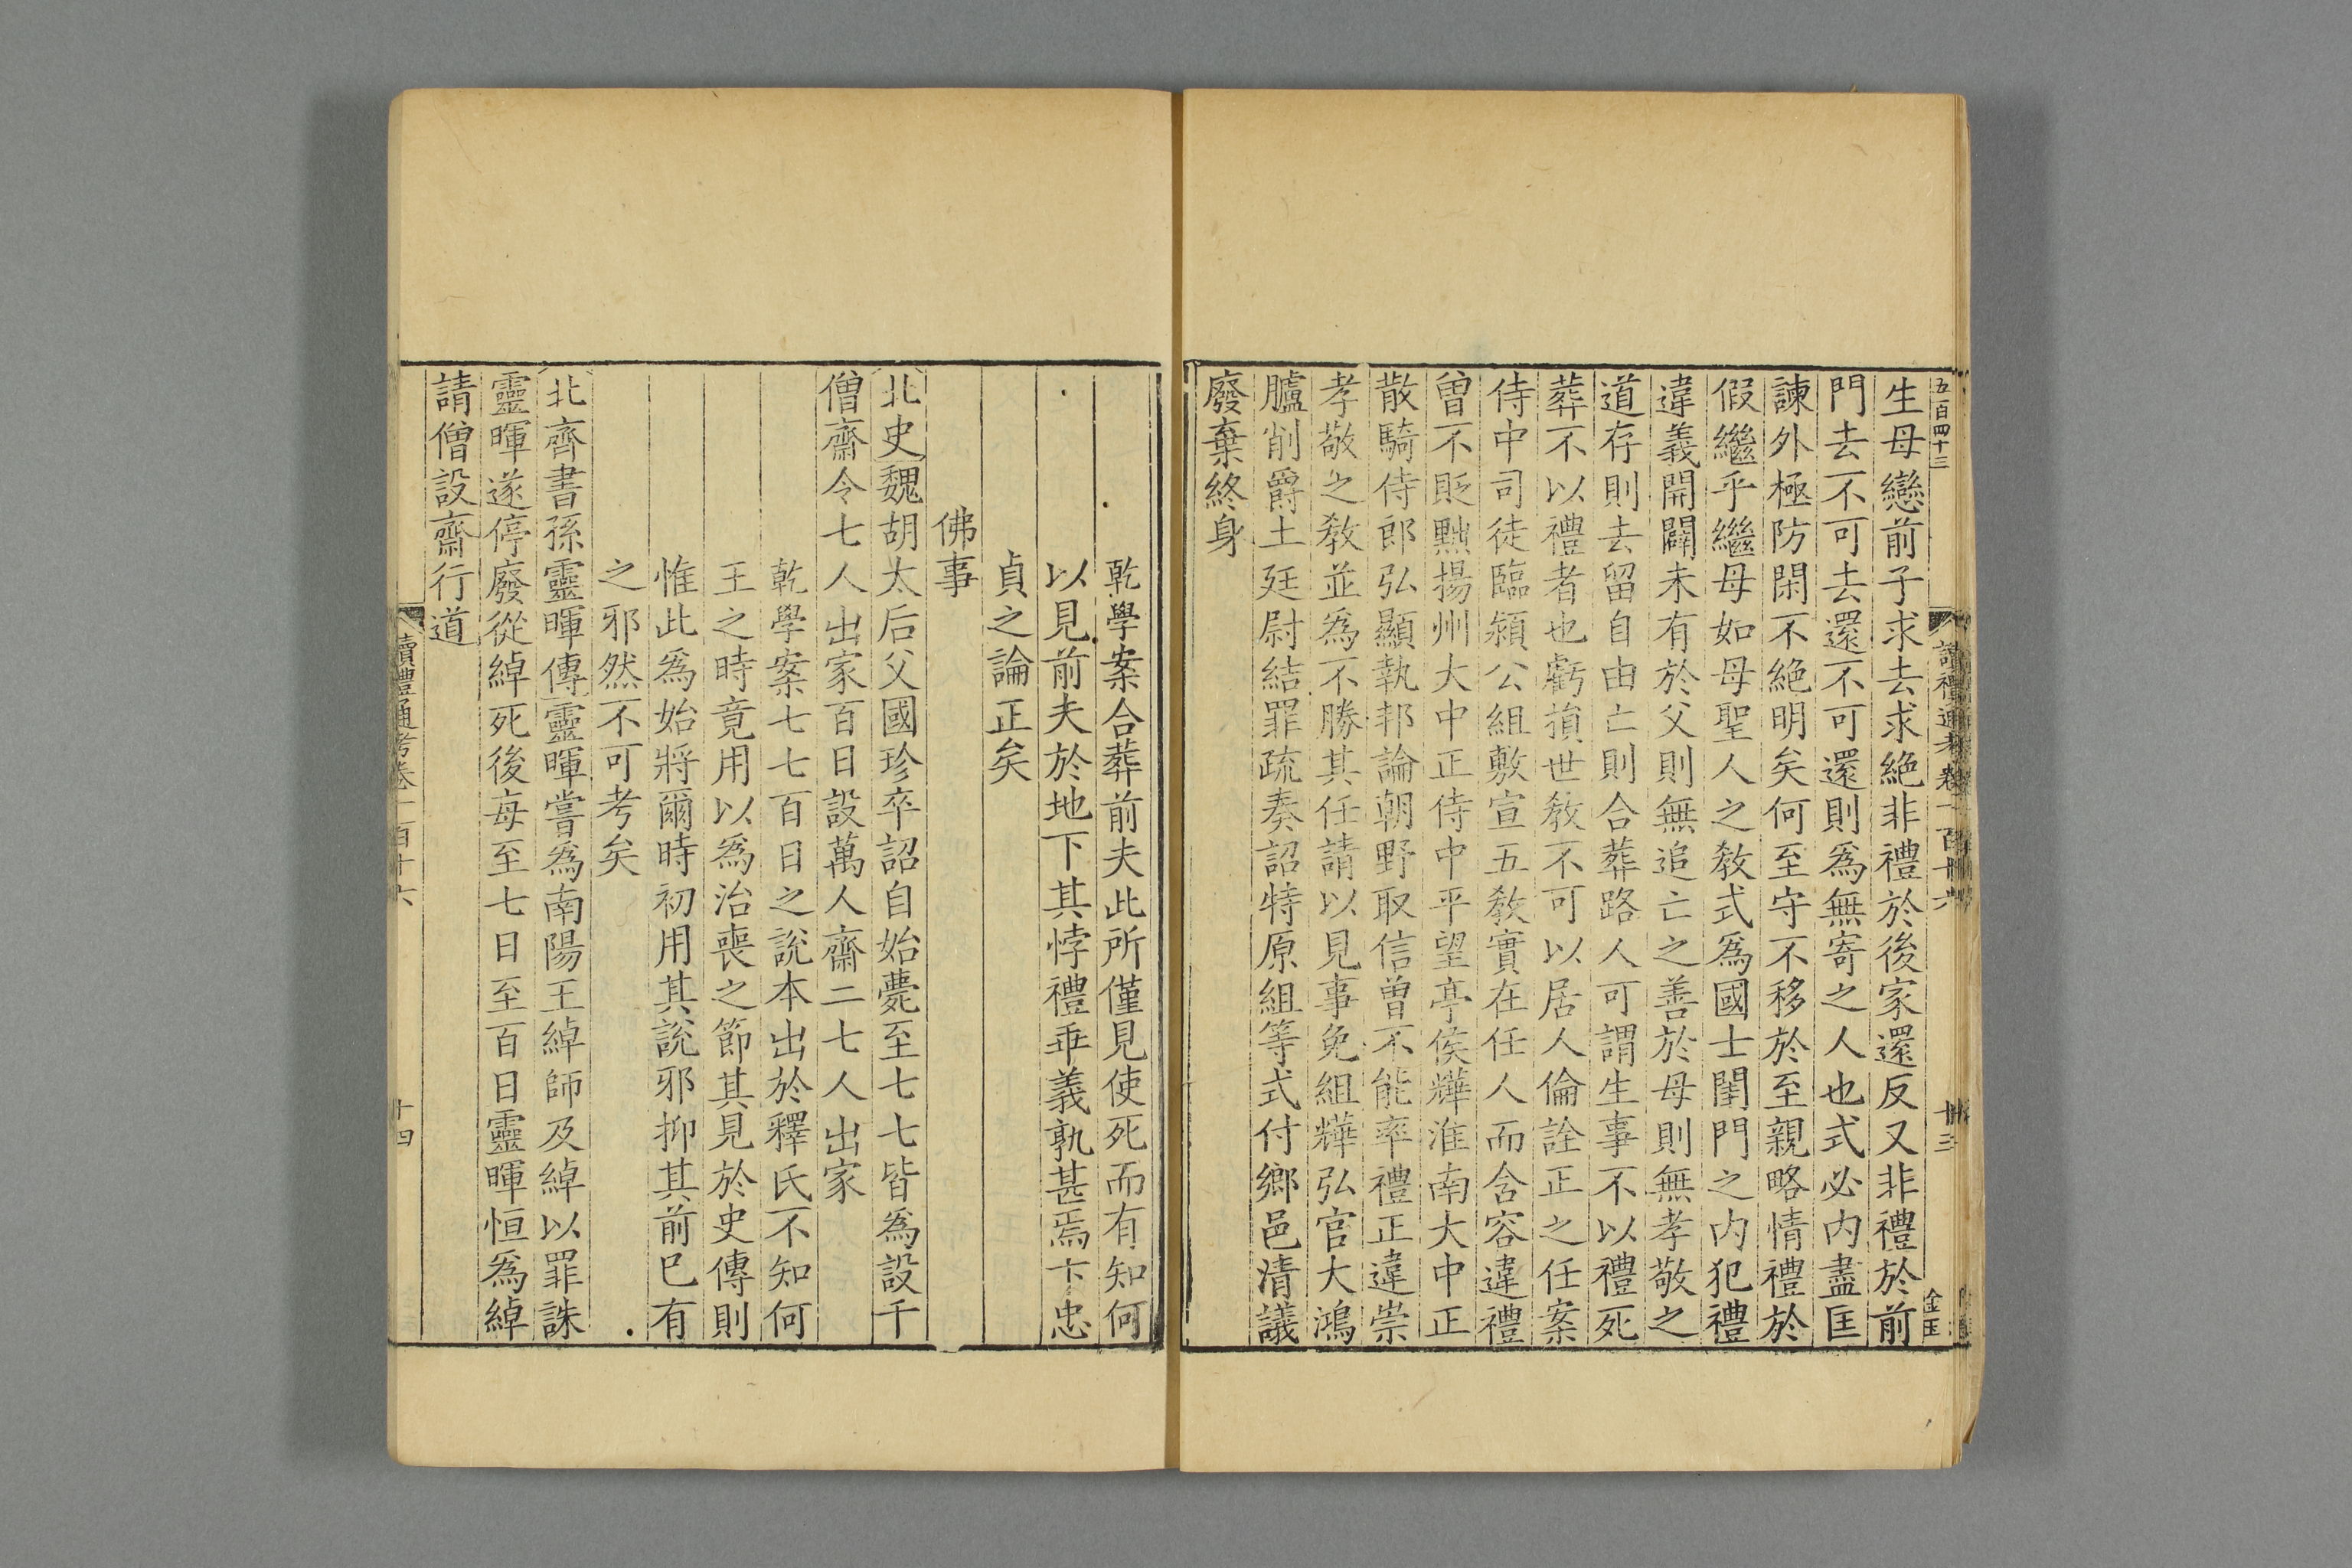 五百四十三
讀禮通考卷一百十六
十三
金玉
生母戀前子求去求絶非禮於後家還反又非禮於前
門去不可去還不可還則爲無寄之人也式必内盡匡
諫外極防閑不絶明矣何至守不移於至親略情禮於
假繼乎繼母如母聖人之敎式爲國士閨門之内犯禮
違義開闢未有於父則無追亡之善於母則無孝敬之
道存則去留自由亡則合葬路人可謂生事不以禮死
葬不以禮者也虧損世敎不可以居人倫詮正之任案
侍中司徒臨潁公組敷宣五敎實在任人而含容違禮
曾不貶黜揚州大中正侍中平望亭侯燁淮南大中正
散騎侍郎弘顯執邦論朝野取信曾不能率禮正違崇
孝敬之敎並爲不勝其任請以見事免組燁弘官大鴻
臚削爵土廷尉結罪疏奏詔特原組等式付鄉邑清議
廢棄終身
乾學案合葬前夫此所僅見使死而有知何
以見前夫於地下其悖禮乖義孰甚焉卞忠
貞之論正矣
佛事
北史魏胡太后父國珍卒詔自始薨至七七皆爲設千
僧齋令七人出家百日設萬人齋二七人出家
乾學案七七百日之說本出於釋氏不知何
王之時竟用以爲治喪之節其見於史傳則
惟此爲始將爾時初用其說邪抑其前已有
之邪然不可考矣
北齊書孫靈暉傳靈暉嘗爲南陽王綽師及綽以罪誅
靈暉遂停廢從綽死後每至七日至百日靈暉恒爲綽
請僧設齋行道
讀禮通考卷一百十六
十四